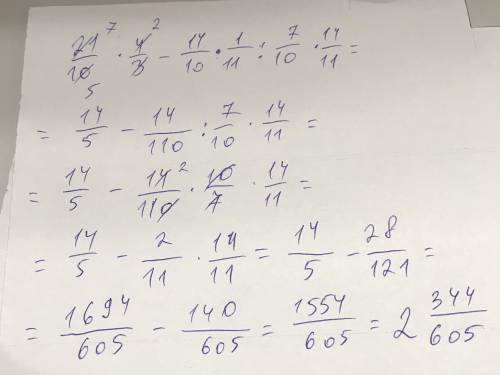 21/10 7 5 · 4/3 2 − 14/10 · 1/11 : 7/10 · 14/11 =
= 14/5 − 14/110 : 7/10 · 14/11 =
= 14/5 − 14/110 2 · 10/7 · 14/11 =
= 14/5 − 2/11 · 14/11 = 14/5 − 28/121 =
= 1694/605 − 140/605 = 1554/605 = 2 344/605